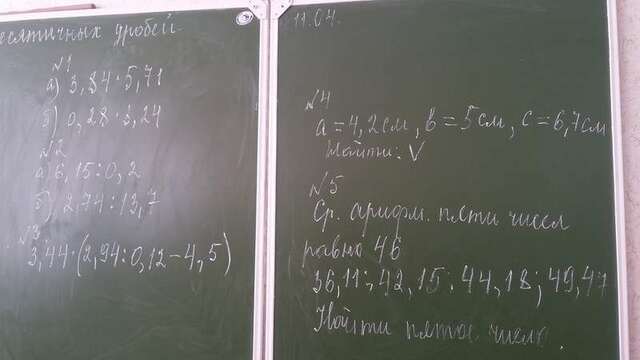 десятичных дробей
№1
а) 3,84·5,71
б) 0,28·3,24
№2
а) 6,15:0,2
б) 2,74:13,7
№3
3,44·(2,94:0,12-4,5)
11.04.
№4
a=4,2см, b=5см, c=6,7см
Найти: V
№5
Ср. арифм. пяти чисел
равно 46
36,11; 42,15; 44,18; 49,47
Найти пятое число.